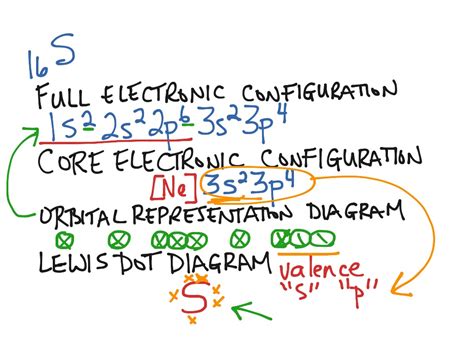 ₁₆S
FULL ELECTRONIC CONFIGURATION
1s² 2s² 2p⁶ 3s² 3p⁴
CORE ELECTRONIC CONFIGURATION
[Ne] 3s² 3p⁴
ORBITAL REPRESENTATION DIAGRAM
LEWIS DOT DIAGRAM valence
"s" "p"
S